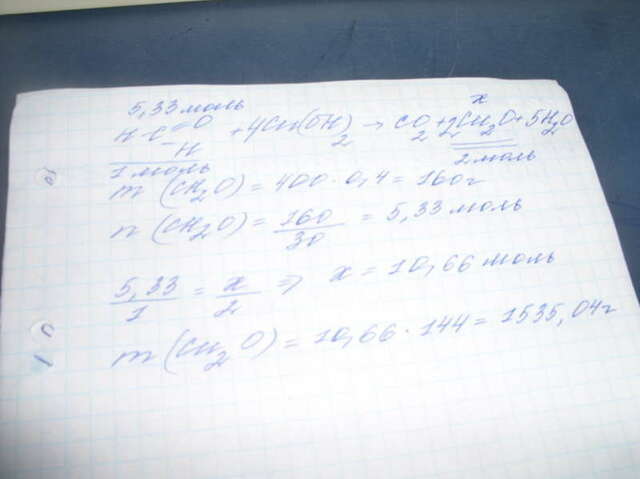 5,33 моль x
H-C=O-H + 4Cu(OH)2 → CO2 + 2Cu2O + 5H2O
1 моль 2 моль
m (CH2O) = 400 · 0,4 = 160г
n (CH2O) = 160/30 = 5,33 моль
5,33/1 = x/2 ⇒ x = 10,66 моль
m (Cu2O) = 10,66 · 144 = 1535,04г